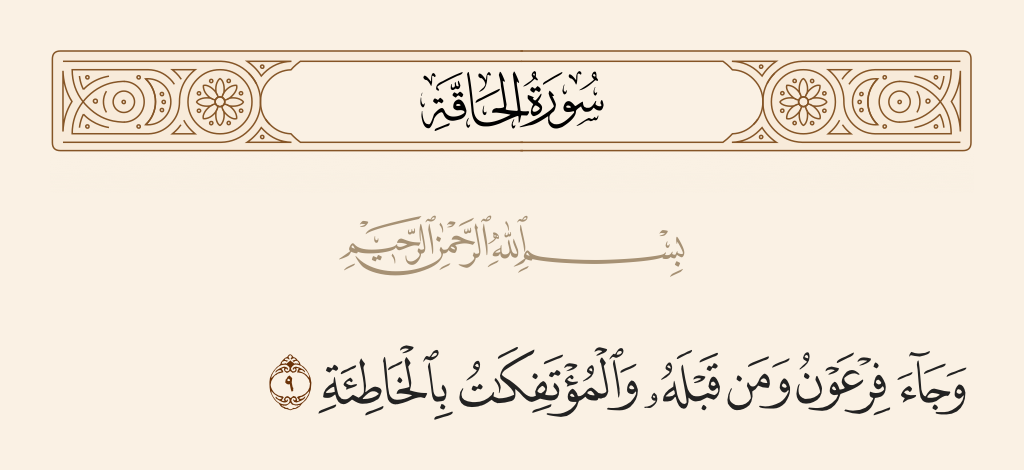 سُورَةُ الحَاقَّةِ
بِسْمِ ٱللَّهِ ٱلرَّحْمَٰنِ ٱلرَّحِيمِ
وَجَآءَ فِرْعَوْنُ وَمَن قَبْلَهُۥ وَٱلْمُؤْتَفِكَٰتُ بِٱلْخَاطِئَةِ ٩